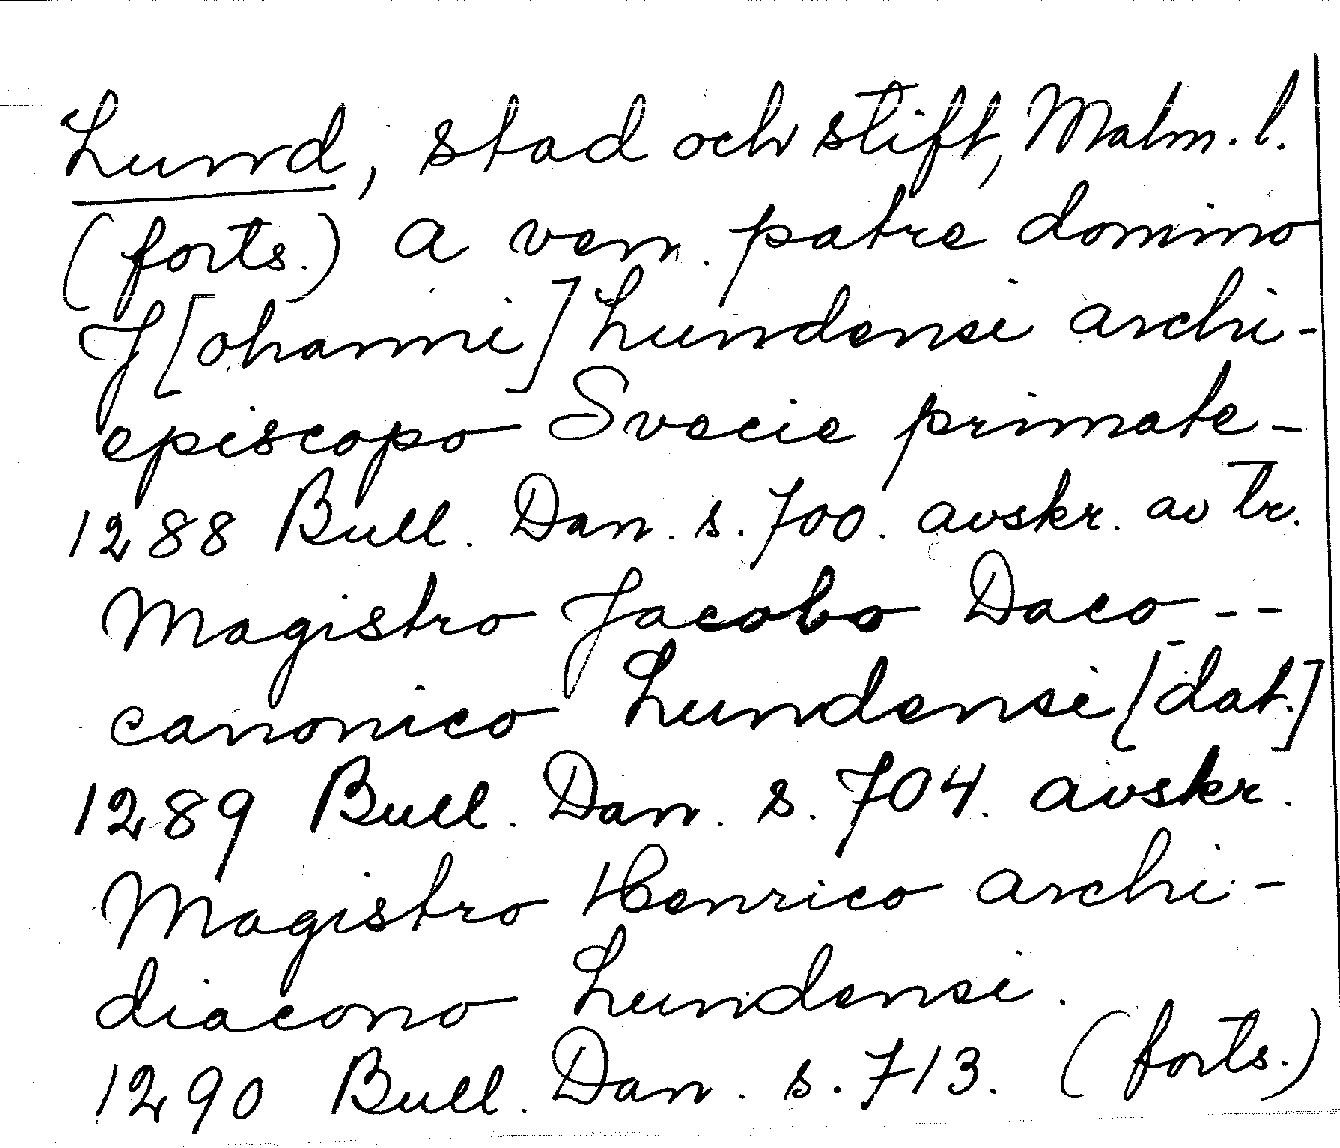 Lund, stad och stift, Malm. l.
(forts.) a ven. patre domino
J[ohanni] Lundensi archi-
episcopo Svecie primate -
1288 Bull. Dan. s. 700. avskr. av tr.
Magistro Jacobo Daco - - -
canonico Lundensi [dat.]
1289 Bull. Dan. s. 704. avskr.
Magistro Henrico archi-
diacono Lundensi.
1290 Bull. Dan. s. 713. (forts.)